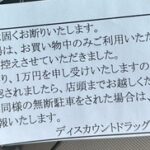 は固くお断りいたします。
場は、お買い物中のみご利用いただ
控えさせていただきました。
り、1万円を申し受けいたしますの
認されましたら、店頭までお越しく
同様の無断駐車をされた場合は、
報いたします。
ディスカウントドラッグ